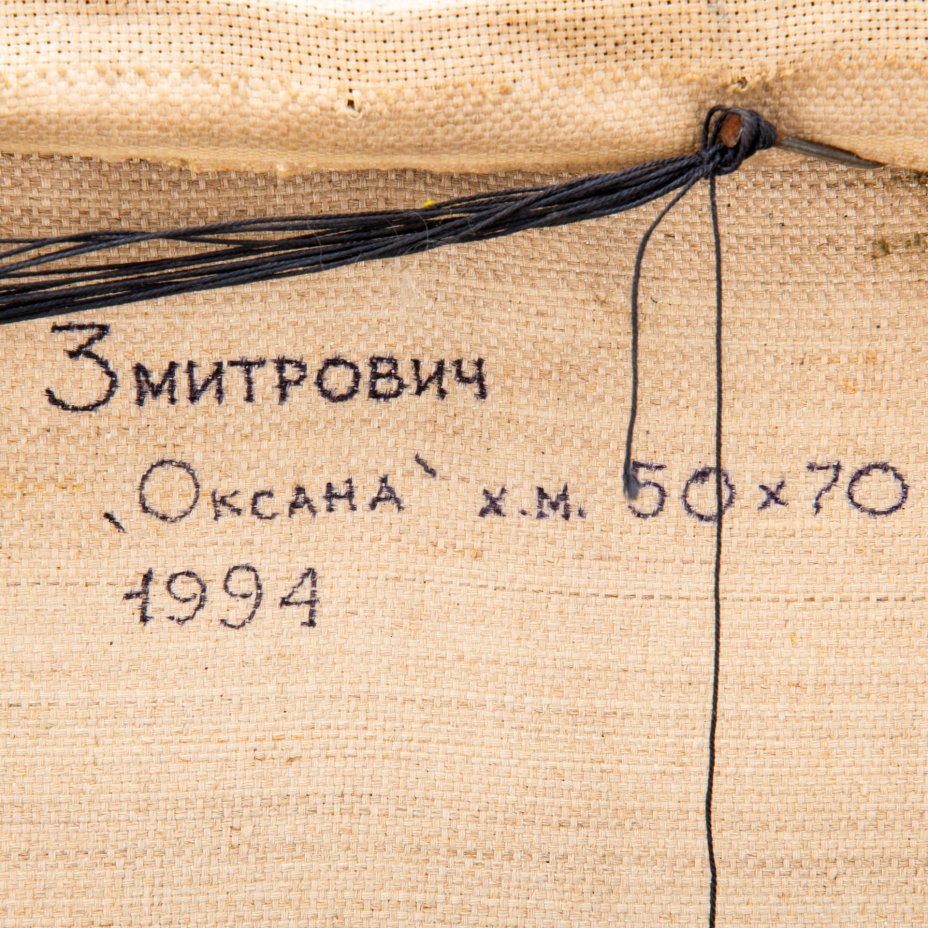 Змитрович
„Оксана‟ х.м. 50х70
1994